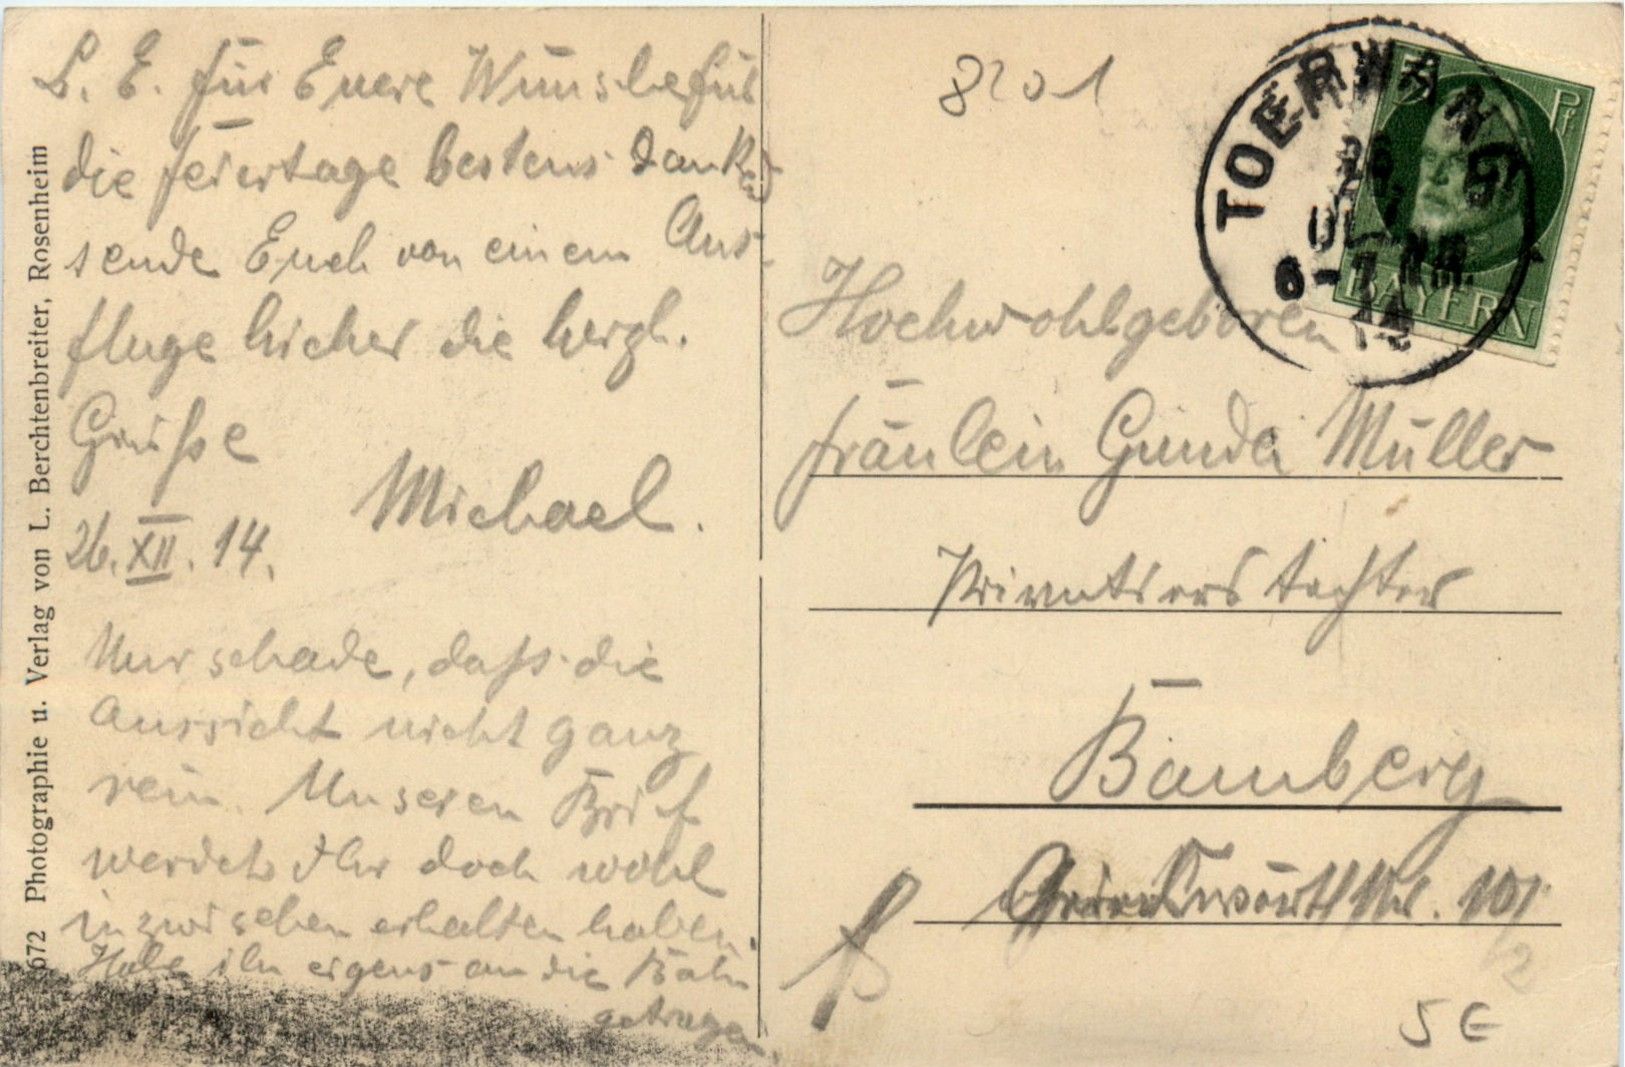 L. E. für Euere Wünsche für
die Feiertage bestens dankend
sende Euch von einem Aus-
fluge hieher die herzl.
Grüße
Michael.
26. XII. 14.
Nur schade, daß die
Aussicht nicht ganz
rein. Unseren Brief
werdet Ihr doch wohl
inzwischen erhalten haben.
Habe ihn eigens an die Bahn
getragen
672 Photographie u. Verlag von L. Berchtenbreiter, Rosenheim
8201
TOERWANG
26
6-7 NM.
14
5 Pf
BAYERN
Hochwohlgeboren
Fräulein Gunda Müller
Privatierstochter
Bamberg
Nr. 10
2
5 €